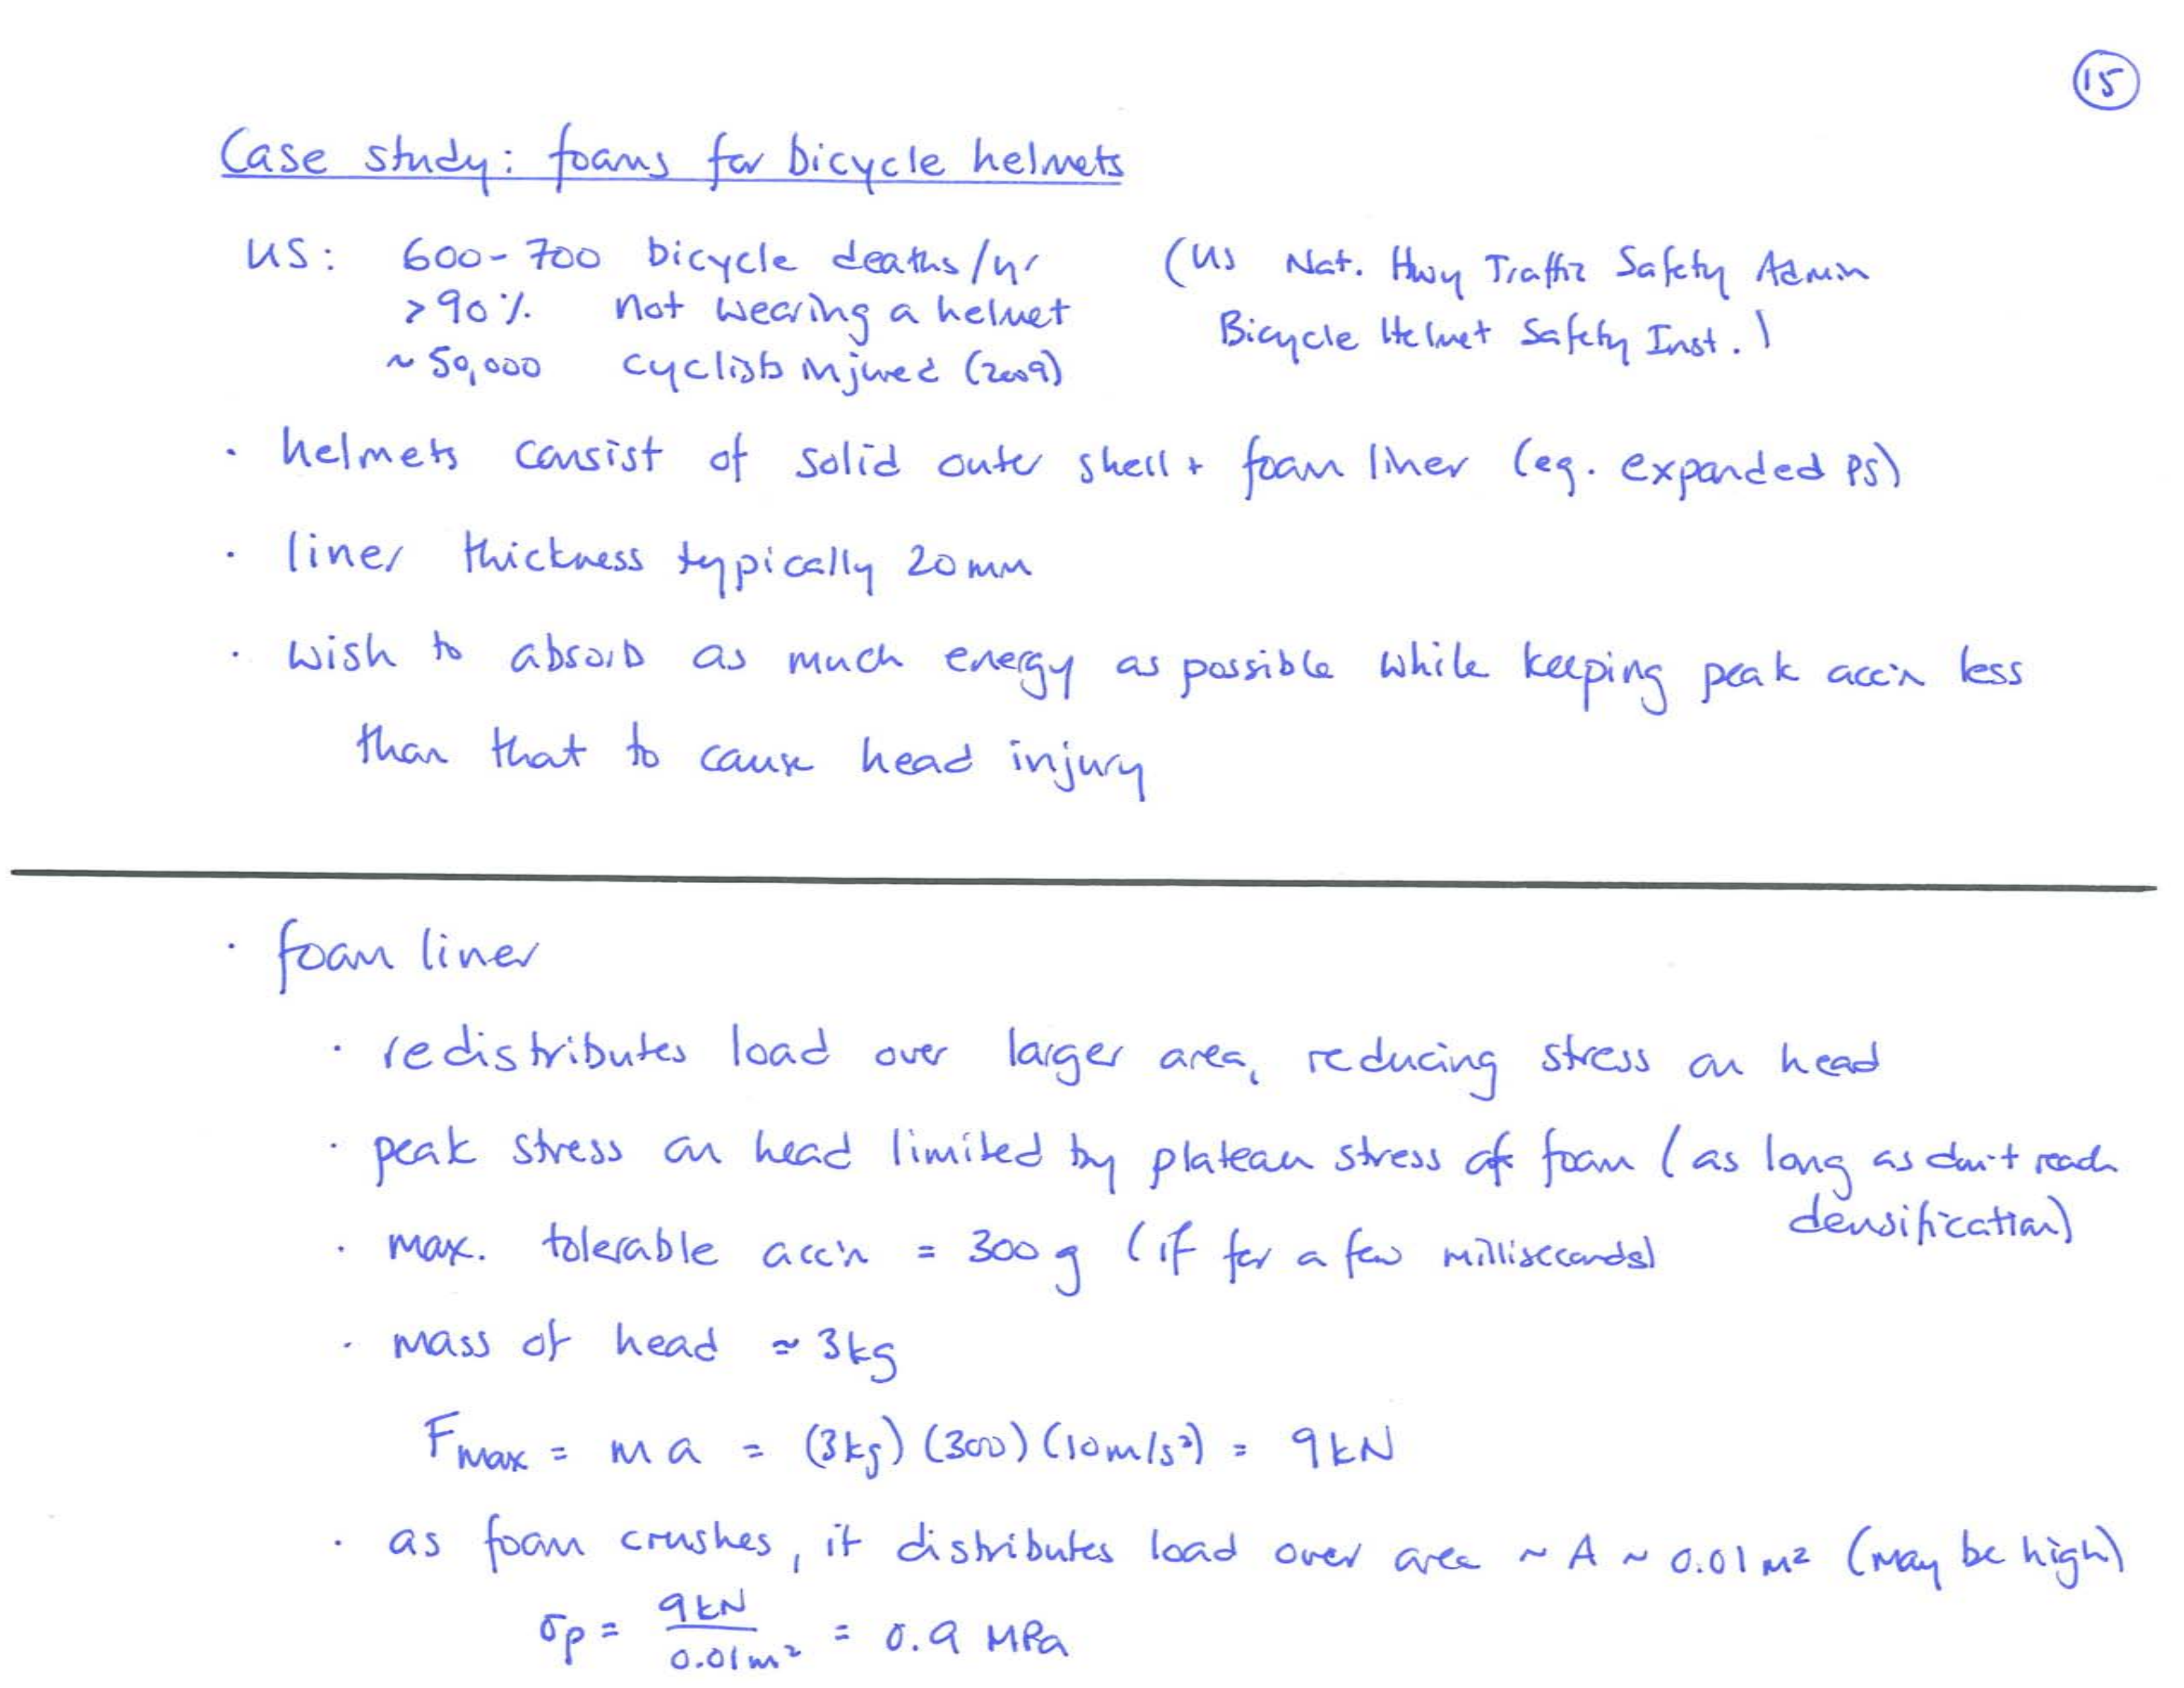 15
Case study: foams for bicycle helmets
US: 600-700 bicycle deaths/yr (US Nat. Hwy Traffic Safety Admin
>90% not wearing a helmet Bicycle Helmet Safety Inst.)
~50,000 cyclists injured (2009)
· helmets consist of solid outer shell + foam liner (eg. expanded PS)
· liner thickness typically 20mm
· wish to absorb as much energy as possible while keeping peak acc'n less
than that to cause head injury
· foam liner
· redistributes load over larger area, reducing stress on head
· peak stress on head limited by plateau stress of foam (as long as don't reach
densification)
· max. tolerable acc'n = 300 g (if for a few milliseconds)
· mass of head ≈ 3kg
Fmax = ma = (3kg)(300)(10m/s²) = 9kN
· as foam crushes, it distributes load over area ~ A ~ 0.01 m² (may be high)
σp = 9kN / 0.01m² = 0.9 MPa